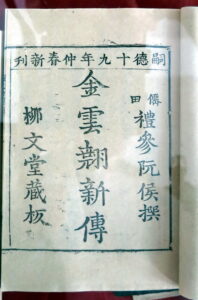 嗣德十九年仲春新刊
僊田禮參阮侯撰
金雲翹新傳
柳文堂藏板